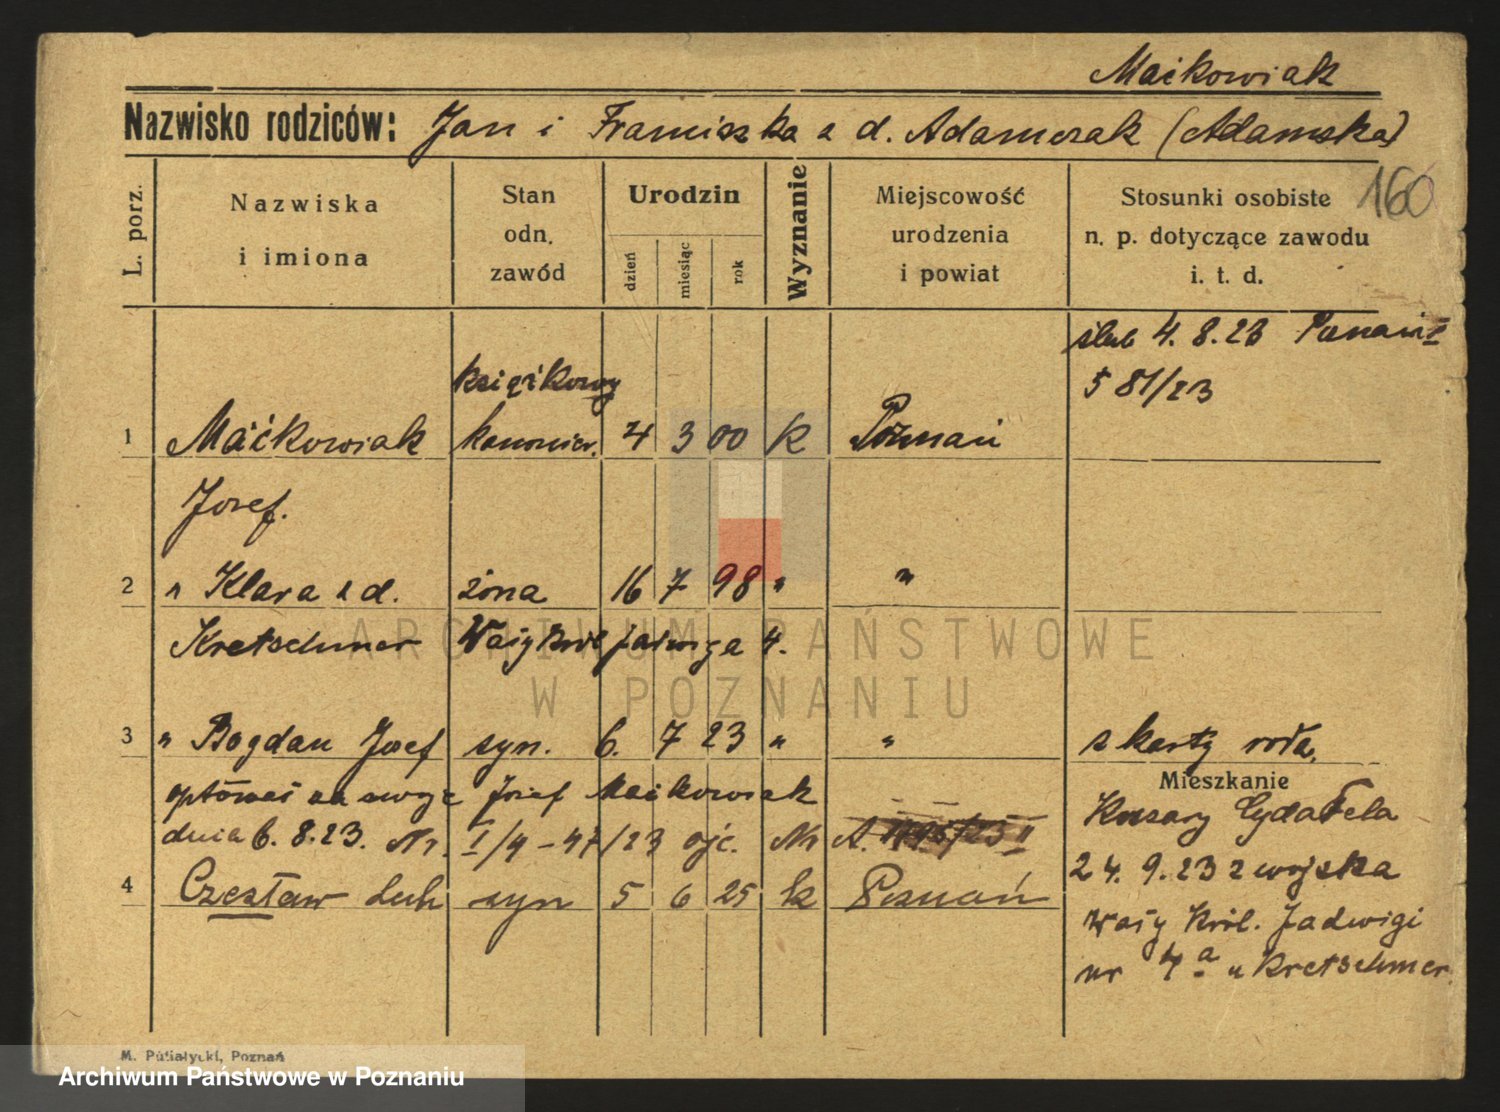 Maćkowiak
Nazwisko rodziców: Jan i Franciszka z d. Adamczak (Adamska)
160
L. porz.
Nazwiska
i imiona
Stan
odn.
zawód
Urodzin
dzień
miesiąc
rok
Wyznanie
Miejscowość
urodzenia
i powiat
Stosunki osobiste
n. p. dotyczące zawodu
i. t. d.
ślub 4. 8. 23 Poznań
581/23
książkowy
1 Maćkowiak kanonier. 4 3 00 k Poznań
Józef.
2 " Klara z d. żona 16 7 98 " "
Kretschmer Wały Król Jadwiga 4.
3 " Bogdan Józef syn. 6. 7 23 " " z karty
Mieszkanie
Józef Maćkowiak
dnia 6. 8. 23. Nr. I/4-47/23 ojc. Nr A.
4 Czesław Lech syn 5 6 25 k Poznań
Koszary Cydatela
24. 9. 23 z wojska
Wały Król. Jadwigi
nr 4a u Kretschmer.
M. Putiatycki, Poznań
ARCHIWUM PAŃSTWOWE
W POZNANIU
Archiwum Państwowe w Poznaniu